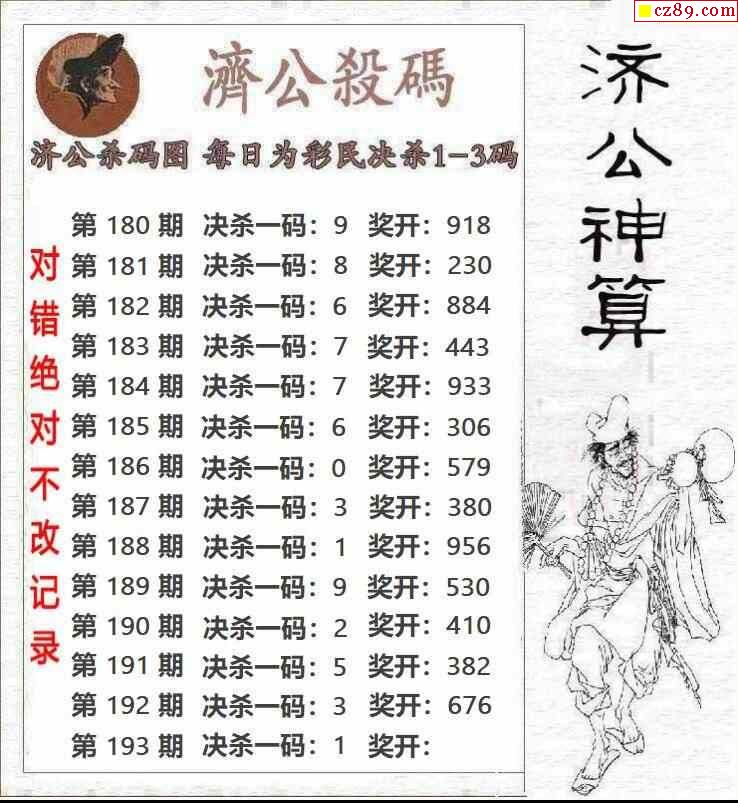 cz89.com
濟公殺碼
济公杀码图 每日为彩民决杀1-3码
第 180 期 决杀一码：9 奖开：918
第 181 期 决杀一码：8 奖开：230
第 182 期 决杀一码：6 奖开：884
第 183 期 决杀一码：7 奖开：443
第 184 期 决杀一码：7 奖开：933
第 185 期 决杀一码：6 奖开：306
第 186 期 决杀一码：0 奖开：579
第 187 期 决杀一码：3 奖开：380
第 188 期 决杀一码：1 奖开：956
第 189 期 决杀一码：9 奖开：530
第 190 期 决杀一码：2 奖开：410
第 191 期 决杀一码：5 奖开：382
第 192 期 决杀一码：3 奖开：676
第 193 期 决杀一码：1 奖开：
对错绝对不改记录
济公神算